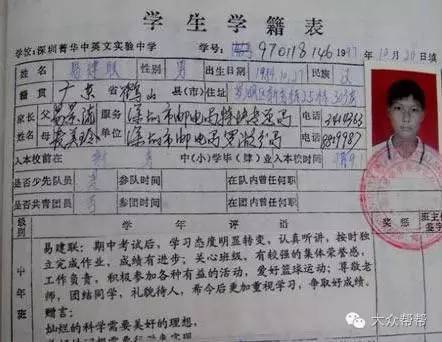 学生学籍表
学校:深圳菁华中英文实验中学 学号: 970118146 1997年10月20日填
姓名 易建联 性别 男 出生日期 1984.10.27 民族 汉
籍贯 广东省鹤山县(市)住址
家长 父 易景流 服务 深圳市邮电局 电话
母 麦美玲 单位 深圳市邮电局罗湖分局 电话
入本校前在 中(小)学毕(肄)业入本校时间
是否少先队员 参队时间 在队内曾任何职
是否共青团员 参团时间 在团内曾任何职
级别 学年评语 奖惩 班主任签字
初中一年班
易建联:期中考试后,学习态度明显转变,认真听讲,按时独
立完成作业,成绩有进步;关心班级,有较强的集体荣誉感,
工作负责,积极参加各种有益的活动,爱好篮球运动;尊敬老
师,团结同学,礼貌待人,希今后更加重视学习,争取好成绩。
赠言:
灿烂的科学需要美好的理想,
大众帮帮